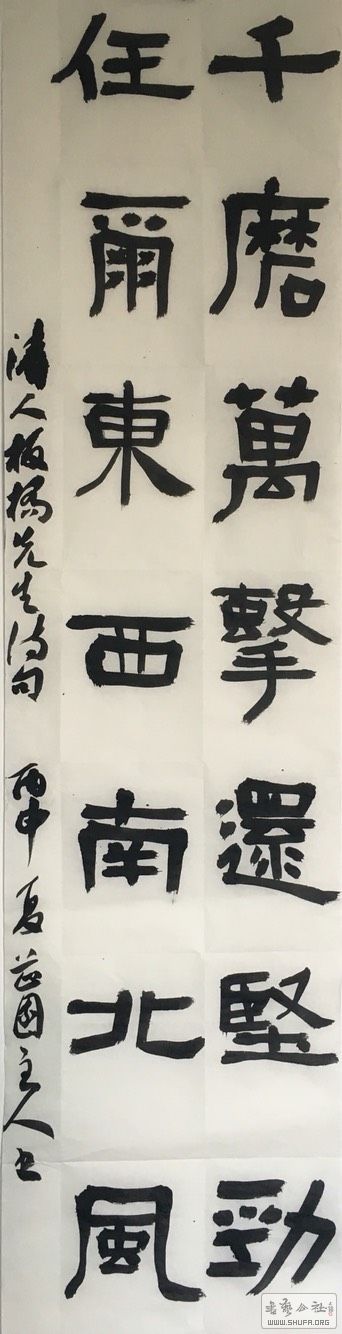 千磨萬擊還堅勁
任爾東西南北風
清人板橋先生詩句 丙申夏 芷園主人書
書藝公社
WWW.SHUFA.ORG